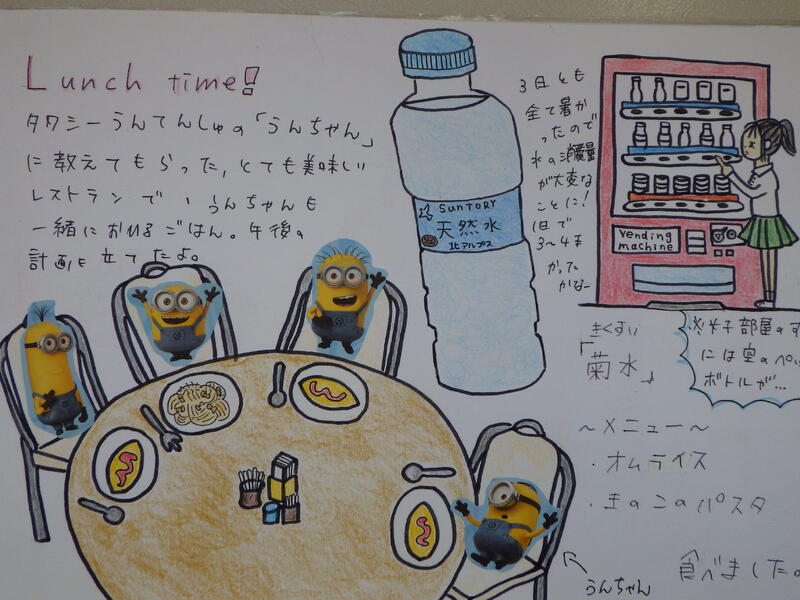 Lunch time!
タクシーうんてんしゅの「うんちゃん」
に教えてもらった、とても美味しい
レストランで、うんちゃんも
一緒におひるごはん。午後の
計画を立てたよ。
SUNTORY
天然水
北アルプス
3日とも
全て暑か
ったので
水の消費量
が大変な
ことに!
1日で
3〜4本
かった
かなー
vending
machine
きくすい
「菊水」
部屋のす
には空のペッ
ボトルが...
〜メニュー〜
・オムライス
・きのこのパスタ
食べました。
うんちゃん